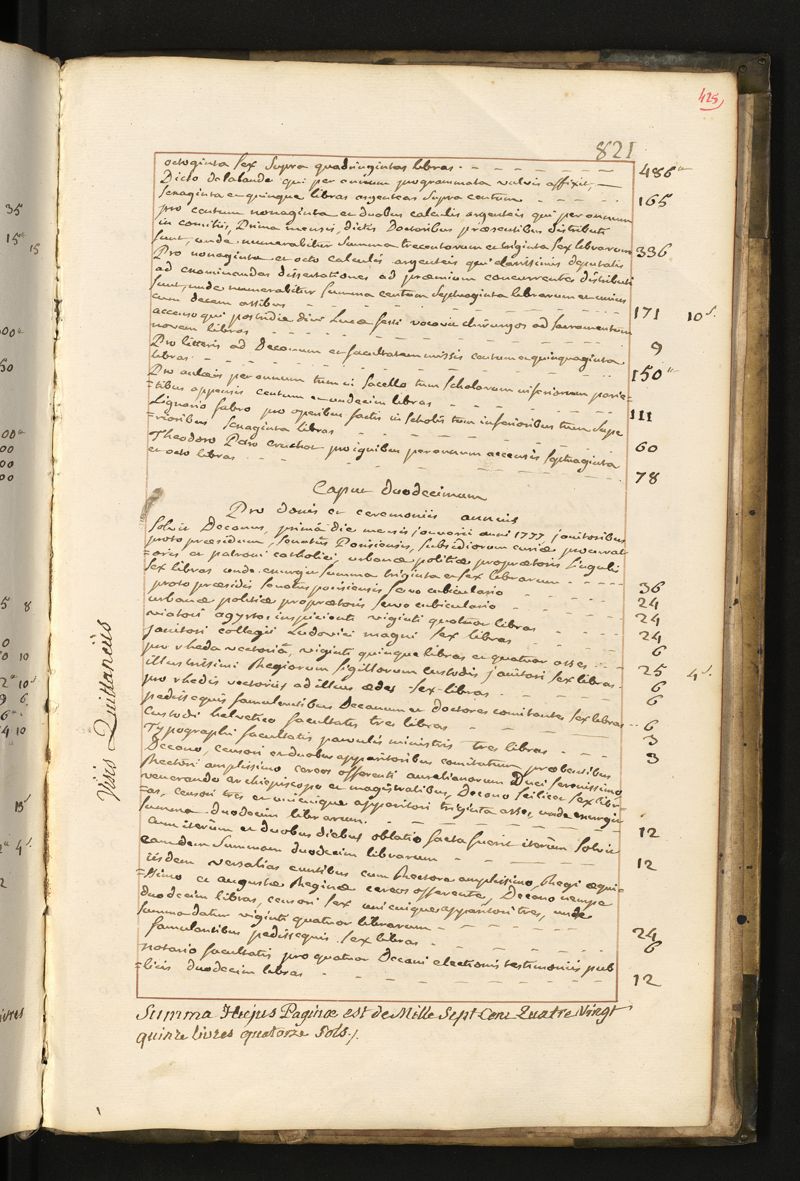 425
821
octoginta sex supra quadringintas libras. 486#
Dicto Delalande qui per annum programmata valvis affixit,
sexaginta et quinque libras argenteas supra centum 165
pro centum nonaginta et duobus calculis argenteis qui per annum
in comitiis, Prima mensis, dictis Doctoribus præsentibus distributi
sunt, unde numerabitur summa trecentorum et triginta sex librarum 336
Pro nonaginta et octo calculis argenteis qui clarissimis deputatis
ad examinandas dissertationes ad præmium concurrentes distributi
sunt, unde numerabitur summa centum septuaginta librarum et unius
cum decem assibus 171 10s.
accenso qui postridie divi Lucæ festi vocavit chirurgos ad sacramentum
novem libras 9
Pro litteris ad Decanum et facultatem missis centum et quinquaginta
libras 150#
Pro aulæis per annum tum in sacello tum scholarum inferiorum parie-
=tibus appensis centum et undecim libras 111
Lignario fabro pro operibus factis in scholis tum inferioribus tum supe
=rioribus sexaginta libras 60
Theodoro Petro Cruchot pro ignibus per annum accensis septuaginta
et octo libras 78
Caput duodecimum
Pro donis et ceremoniis annuis
Solvit Decanus, primâ die mensis januarii anni 1777 janitoribus
proto præsidum, senatûs Parisiensis, subsidiorum curiæ procurat
=oris et patroni catholici, urbanæ politiæ proprætoris singuli
sex libras unde emergit summa triginta et sex librarum 36
proto præsidis senatus parisiensis servo cubiculario 24
urbanæ politiæ proprætoris servo cubiculario 24
viatori agyrtos inspicienti viginti quatuor libras 24
janitori collegii Ludovici magni sex libras 6
pro rheda vectoriâ, viginti quinque libras et quatuor asses 25 4s.
illustrissimi Regiorum sigillorum custodis janitori sex libras 6
pro rhedis vectoriis ad illius ædes sex libras 6
pedissequis famulantibus Decanum et doctores comitantes sex libras 6
Custodi helvetico facultatis tres libras 3
Typographi facultatis parvulis ministris tres libras 3
Decano, censori et duobus apparitoribus comitatum præbentibus
Rectori amplissimo cereos offerenti aurelianorum Duci serenissimo
venerando archiepiscopo et magistratibus, Decano scilicet sex libr
=as, censori tres et unicuique apparitori triginta asses, unde emergit
summa duodecim librarum. 12
Cum iterùm et duobus diebus oblatio facta fuerit iterùm solvit
eamdem summam duodecim librarum 12
iisdem versalias euntibus cum Rectore amplissimo, Regi æqui-
=ssimo et augustæ Reginæ cereos offerente, Decano nempe
duodecim libras, censori sex unicuique apparitori tres, unde
summa datur viginti quatuor librarum 24
famulantibus pedissequis sex libras 6
notario facultatis pro quatuor Decani electionis testimoniis pub
=licis duodecim libras 12
Visis Quittanciis
Summa Hujus Paginæ est de Mille Sept Cent Quatre Vingt
quinze livres quatorze sols./.